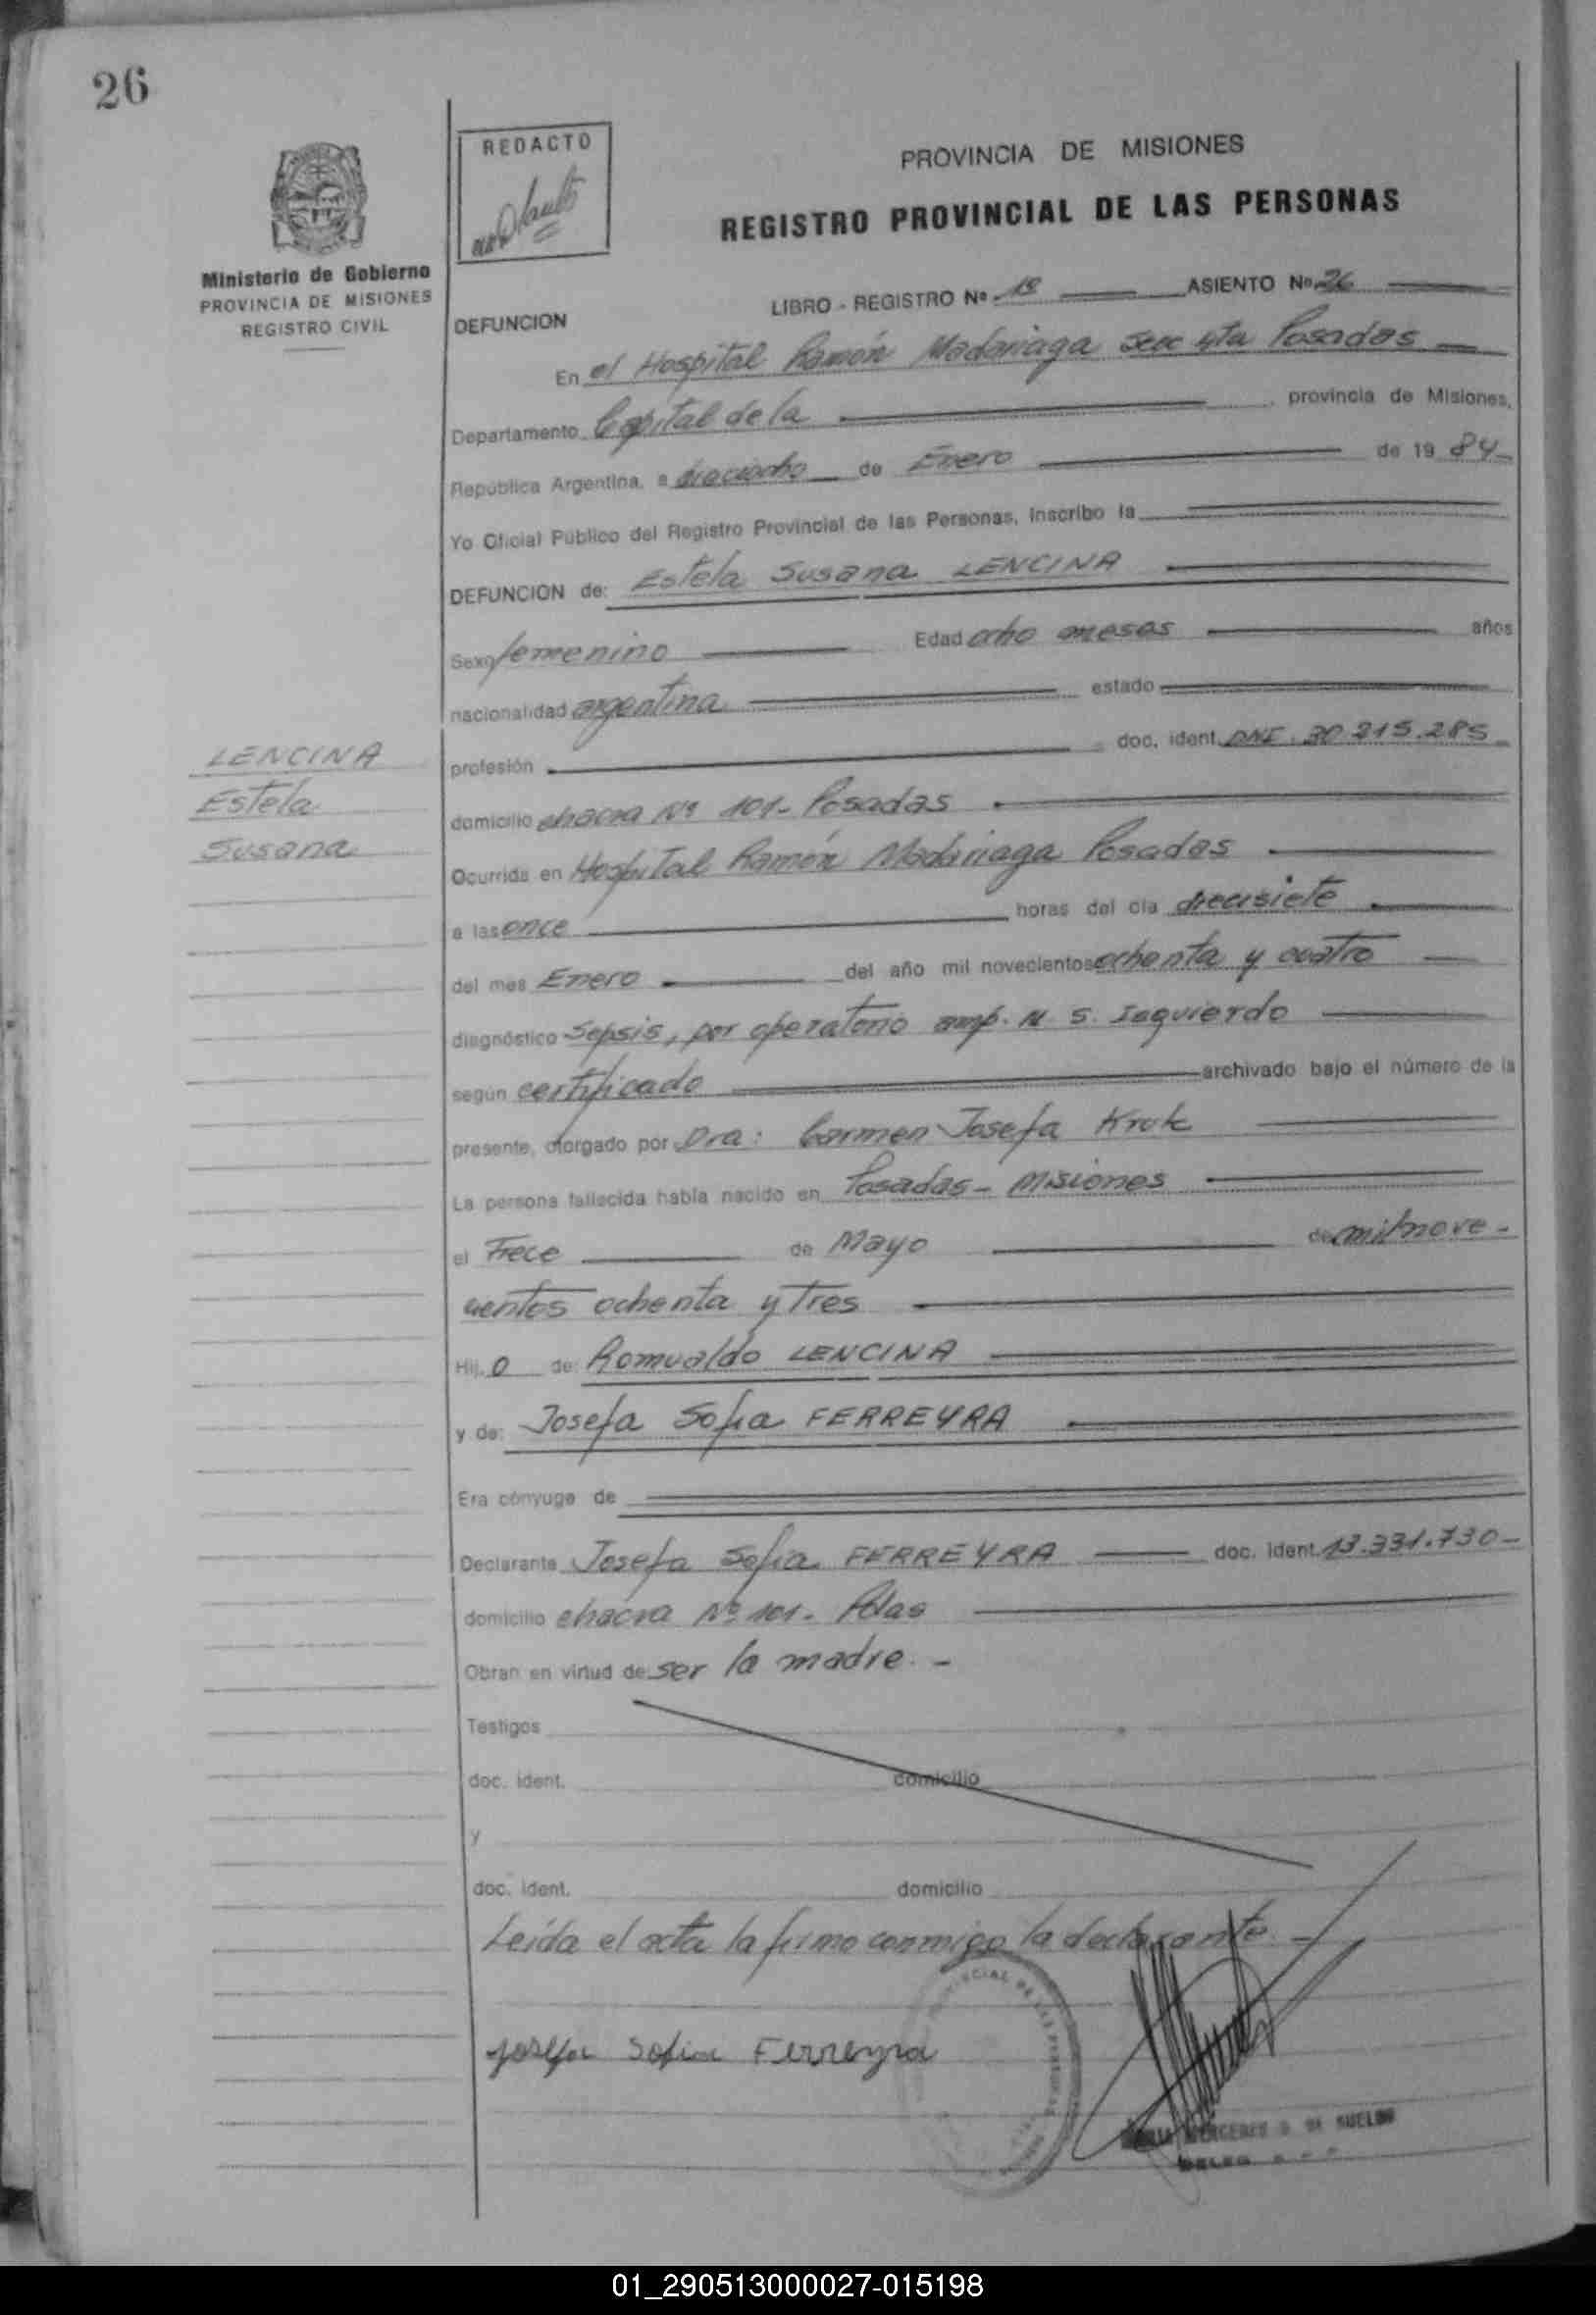 26
REDACTO
PROVINCIA DE MISIONES
REGISTRO PROVINCIAL DE LAS PERSONAS
Ministerio de Gobierno
PROVINCIA DE MISIONES
REGISTRO CIVIL
LIBRO - REGISTRO Nº 18 ASIENTO Nº 26
DEFUNCION
En el Hospital Ramón Madariaga Secc 4ta Posadas
Departamento Capital de la provincia de Misiones,
República Argentina, a dieciocho de Enero de 1984
Yo Oficial Público del Registro Provincial de las Personas, inscribo la
DEFUNCION de: Estela Susana LENCINA
Sexo femenino Edad ocho meses años
nacionalidad argentina estado
profesión doc. ident. DNI. 30.215.285
LENCINA
Estela
Susana
domicilio chacra Nº 101- Posadas
Ocurrida en Hospital Ramón Madariaga Posadas
a las once horas del día diecisiete
del mes Enero del año mil novecientos ochenta y cuatro
diagnóstico Sepsis, por operatorio amp. M. S. Izquierdo
según certificado archivado bajo el número de la
presente, otorgado por Dra: Carmen Josefa Kruk
La persona fallecida había nacido en Posadas- Misiones
el Trece de Mayo de mil nove-
cientos ochenta y Tres
Hij o de: Romualdo LENCINA
y de: Josefa Sofia FERREYRA
Era cónyuge de
Declarante Josefa Sofia FERREYRA doc. ident. 13.331.730-
domicilio chacra Nº 101. Pdas
Obran en virtud de ser la madre.-
Testigos
doc. ident. domicilio
y
doc. ident. domicilio
Leída el acta la firma conmigo la declarante.-
Josefa Sofia Ferreyra
MERCEDES D. DE SUELDO
01_290513000027-015198